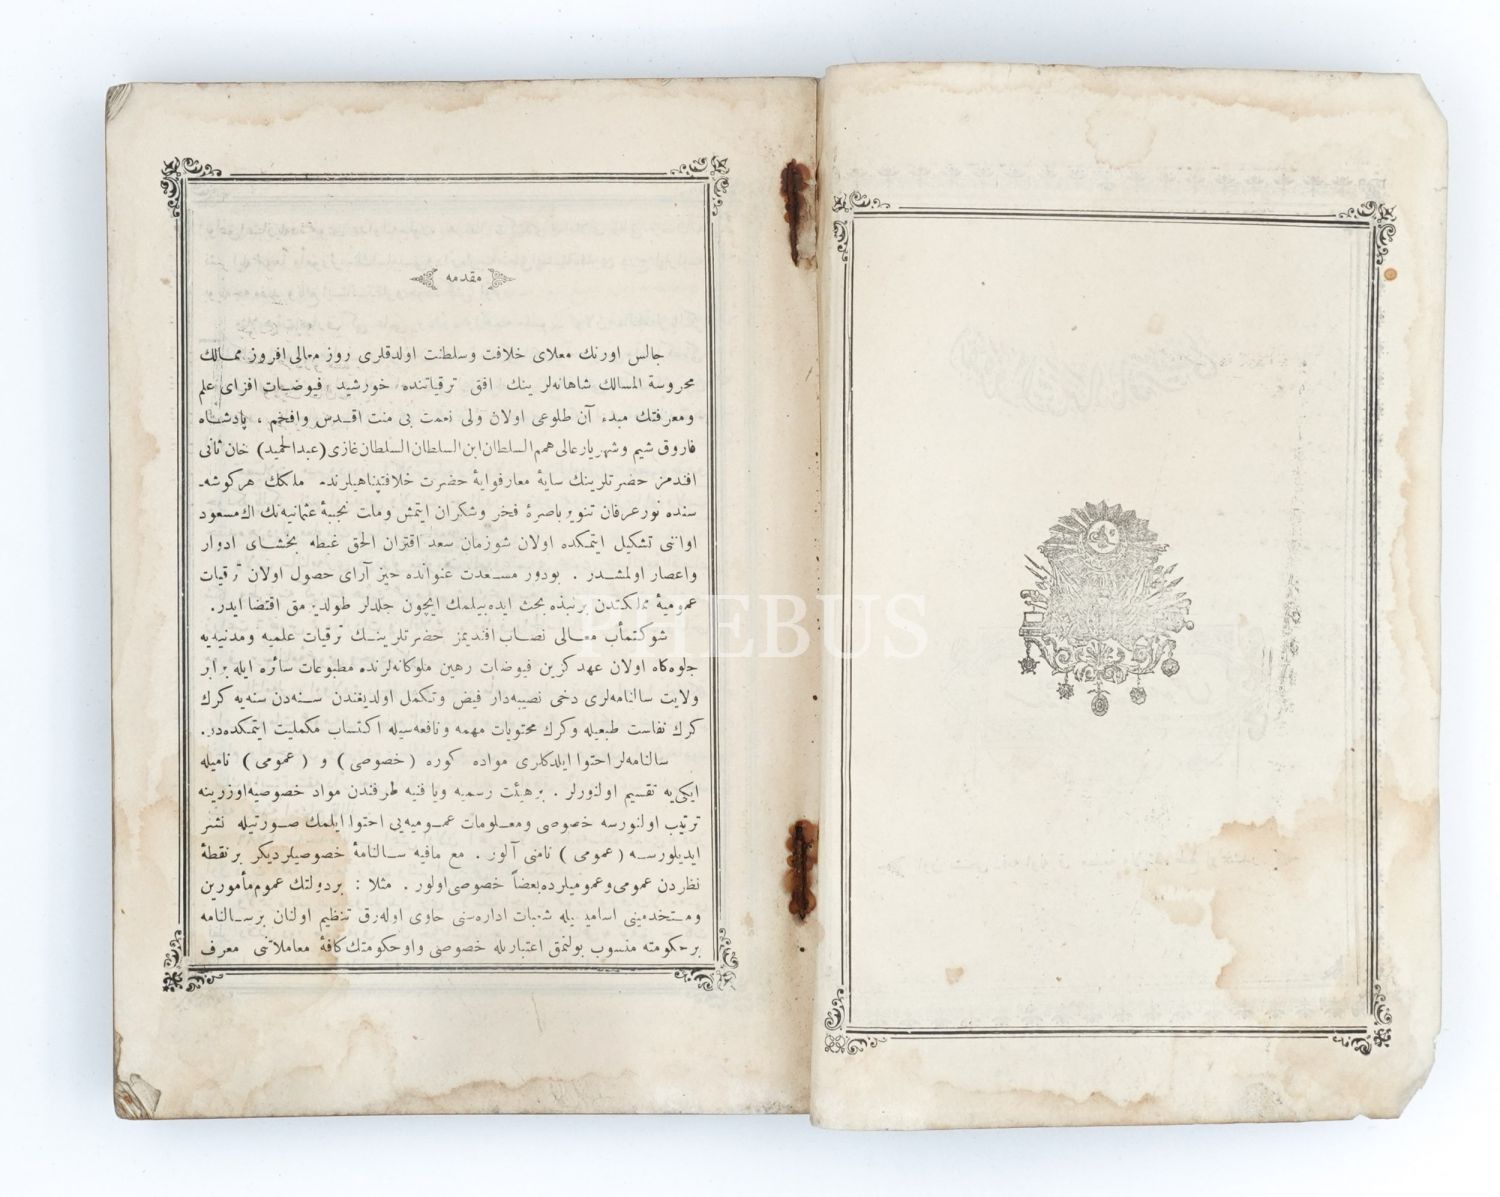 مقدمه
جالس اورنك معلای خلافت وسلطنت اولدقلری روز معالی‌افروز ممالك
محروسة المسالك شاهانه‌لرینك افق ترقیاتنده خورشید فیوضات افزای علم
ومعرفتك مبدء آن طلوعی اولان ولی نعمت بی منت اقدس وافخم ، پادشاه
فاروق شیم وشهریار عالی همم السلطان ابن السلطان السلطان غازی (عبدالحمید) خان ثانی
افندمز حضرتلرینك سایهٔ معارفوایهٔ حضرت خلافتپناهیلرنده ملكك هركوشه‌ـ
سنده نور عرفان تنویر باصرهٔ فخر وشكران ایتمش وملت نجیبهٔ عثمانیه‌نك اك مسعود
اواننی تشكیل ایتمكده اولان شوزمان سعد اقتران الحق غبطه بخشای ادوار
واعصار اولمشدر . بودور مسعدت عنوانده حیز آرای حصول اولان ترقیات
عمومیهٔ مملكتدن برنبذه بحث ایده‌بیلمك ایچون جلدلر طولدیرمق اقتضا ایدر.
شوكتمأب معالی نصاب افندیمز حضرتلرینك ترقیات علمیه ومدنیه‌یه
جلوه‌كاه اولان عهد كزین فیوضات رهین ملوكانه‌لرنده مطبوعات سائره ایله برابر
ولایت سالنامه‌لری دخی نصیبه‌دار فیض وتكمل اولدیغندن سنه‌دن سنه‌یه كرك
كرك نفاست طبعیله وكرك محتویات مهمه ونافعه‌سیله اكتساب مكملیت ایتمكده‌در.
سالنامه‌لر احتوا ایلدكلری مواده كوره (خصوصی) و (عمومی) نامیله
ایكی‌یه تقسیم اولنورلر . برهیئت رسمیه ویا فنیه طرفندن مواد خصوصیه اوزرینه
ترتیب اولنورسه خصوصی ومعلومات عمومیه‌یی احتوا ایلمك صورتیله نشر
ایدیلورسه (عمومی) نامنی آلور . مع مافیه سالنامهٔ خصوصیلر دیكر برنقطهٔ
نظردن عمومی وعمومیلرده بعضاً خصوصی اولور . مثلا : بردولتك عموم مأمورین
ومستخدمینی اسامیدیله شعبات اداره‌سنی حاوی اوله‌رق تنظیم اولنان برسالنامه
برحكومته منسوب بولنمق اعتباریله خصوصی واوحكومتك كافهٔ معاملاتنی معرف
PHEBUS